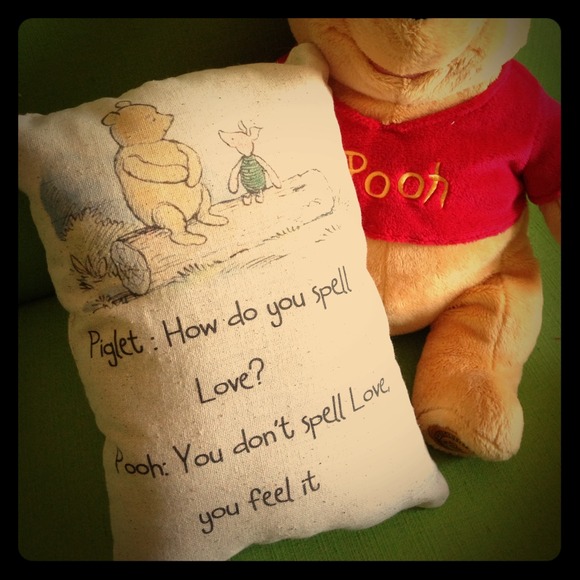 Pooh
Piglet : How do you spell
Love?
Pooh: You don't spell Love,
you feel it